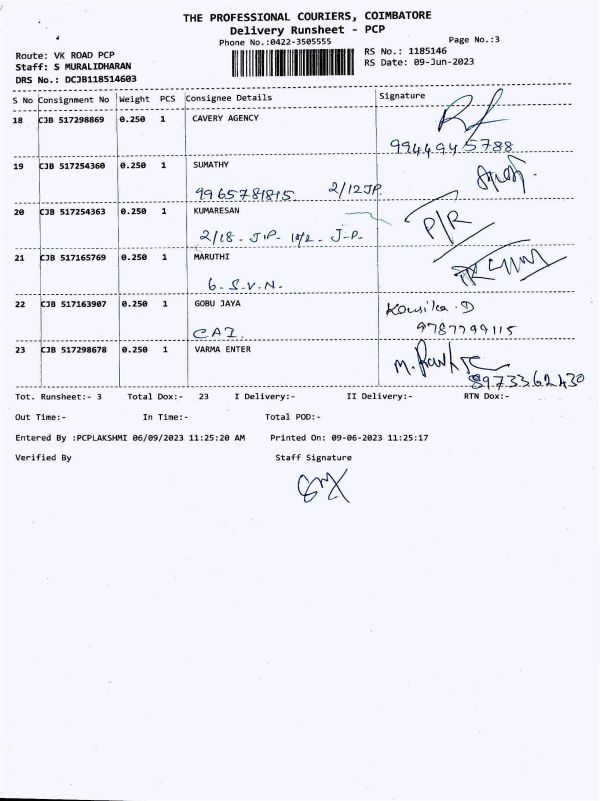 THE PROFESSIONAL COURIERS, COIMBATORE
Delivery Runsheet - PCP
Phone No.:0422-3505555
Page No.:3
Route: VK ROAD PCP
RS No.: 1185146
Staff: S MURALIDHARAN
RS Date: 09-Jun-2023
DRS No.: DCJB118514603
S No Consignment No Weight PCS Consignee Details Signature
18 CJB 517298869 0.250 1 CAVERY AGENCY
9944945788
19 CJB 517254360 0.250 1 SUMATHY
9965781815 2/12 J.P.
20 CJB 517254363 0.250 1 KUMARESAN P/R
2/18 - J.P- J-P-
21 CJB 517165769 0.250 1 MARUTHI
6-S.V.N-
22 CJB 517163907 0.250 1 GOBU JAYA Kousika.D
9787799115
23 CJB 517298678 0.250 1 VARMA ENTER
8973362430
Tot. Runsheet:- 3 Total Dox:- 23 I Delivery:- II Delivery:- RTN Dox:-
Out Time:- In Time:- Total POD:-
Entered By :PCPLAKSHMI 06/09/2023 11:25:20 AM Printed On: 09-06-2023 11:25:17
Verified By Staff Signature